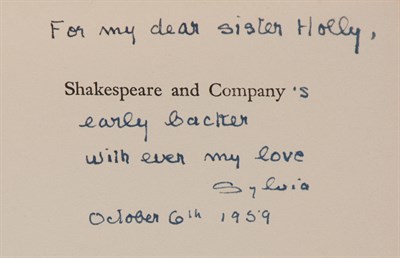 For my dear sister Holly,
Shakespeare and Company's
early backer
with ever my love
Sylvia
October 6th 1959